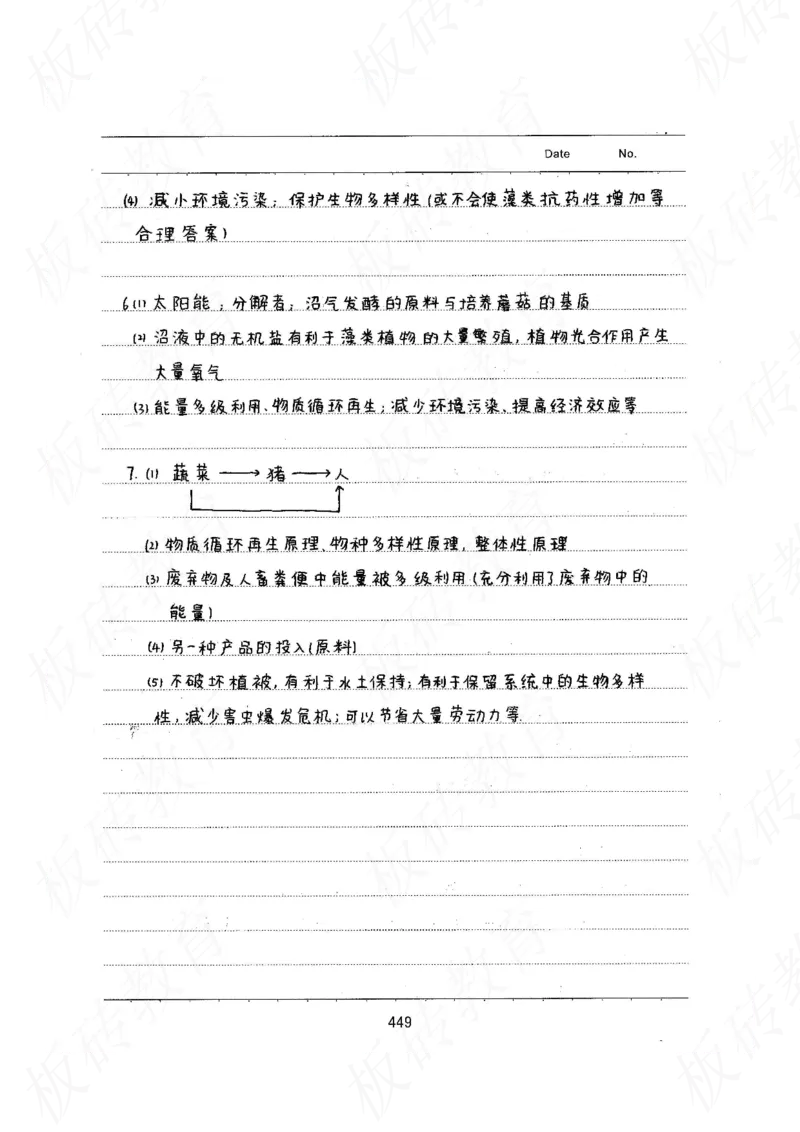 Date No.
(4) 减小环境污染; 保护生物多样性(或不会使藻类抗药性增加等
合理答案)
6(1)太阳能; 分解者; 沼气发酵的原料与培养蘑菇的基质
(2) 沼液中的无机盐有利于藻类植物的大量繁殖, 植物光合作用产生
大量氧气
(3)能量多级利用、物质循环再生; 减少环境污染、提高经济效应等
7. (1) 蔬菜 → 猪 → 人
(2) 物质循环再生原理、物种多样性原理, 整体性原理
(3) 废弃物及人畜粪便中能量被多级利用(充分利用了废弃物中的
能量)
(4) 另一种产品的投入(原料)
(5) 不破坏植被, 有利于水土保持; 有利于保留系统中的生物多样
性, 减少害虫爆发危机; 可以节省大量劳动力等.
449
板砖教育